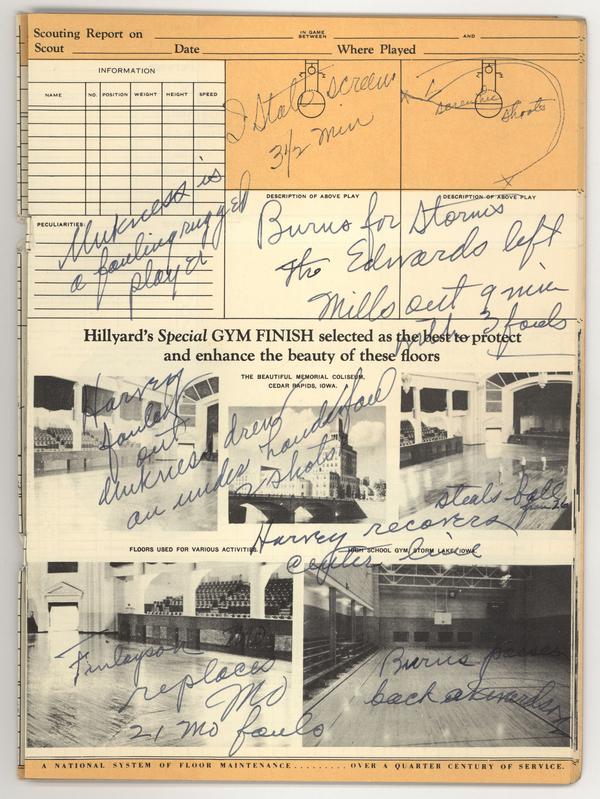 Scouting Report on
IN GAME BETWEEN
AND
Scout Date Where Played
INFORMATION
NAME NO. POSITION WEIGHT HEIGHT SPEED
I State screens
3 1/2 min
screening
shoots
PECULIARITIES:
Mukness is
a fouling rugged
player
DESCRIPTION OF ABOVE PLAY
DESCRIPTION OF ABOVE PLAY
Burns for Storms
the Edwards left
Mills out 9 min
with 3 fouls
Hillyard's Special GYM FINISH selected as the best to protect
and enhance the beauty of these floors
THE BEAUTIFUL MEMORIAL COLISEUM,
CEDAR RAPIDS, IOWA.
Harvey
fouled
out
Mukness drew
an under handed foul
2 shots
steals ball
from 26
Harvey recovers
center line
FLOORS USED FOR VARIOUS ACTIVITIES.
HIGH SCHOOL GYM, STORM LAKE, IOWA.
Finlayson MO
replaces
MO
21 MO fouls
Burns passes
back
A NATIONAL SYSTEM OF FLOOR MAINTENANCE.........OVER A QUARTER CENTURY OF SERVICE.